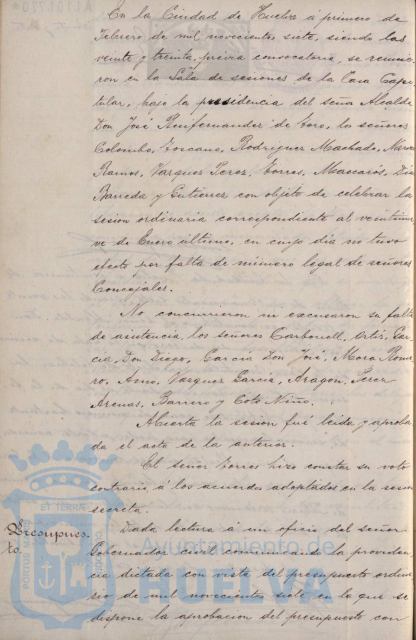 En la Ciudad de Huelva á primero de
Febrero de mil novecientos siete, siendo las
veinte y treinta, previa convocatoria, se reunie-
ron en la Sala de sesiones de la Casa Capi-
tular, bajo la presidencia del señor Alcalde
Don José de Toro, los señores
Colombo, Toscano, Rodriguez Machado,
Ramos, Vazquez Perez, Torres, Mascarós,
Barreda y Gutierrez con objeto de celebrar la
sesion ordinaria correspondiente al veintinue
ve de Enero último, en cuyo dia no tuvo
efecto por falta de número legal de señores
Concejales.
No concurrieron ni excusaron su falta
de asistencia, los señores Carbonell, Ortiz, Gar-
cia, Don Diego, García Don José, Mora Rome-
ro, Vazquez Garcia, Aragon, Perez
Arenas, Barrero y Coto Niño.
Abierta la sesion fué leida y aproba-
da el acta de la anterior.
El señor Torres hizo constar su voto
contrario á los acuerdos adoptados en la sesion
secreta.
Presupues-
to.
Dada lectura á un oficio del señor
Gobernador civil comunicando la providen-
cia dictada con vista del presupuesto ordina-
rio de mil novecientos siete en la que se
dispone la aprobacion del presupuesto con
ET TERRAE
Ayuntamiento de
HUELVA